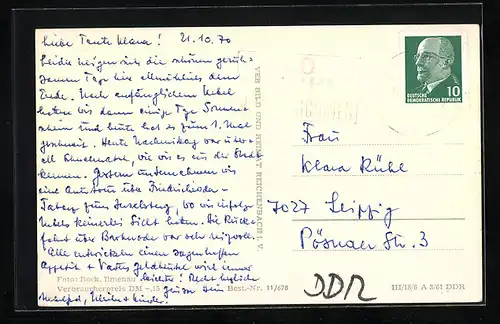 Liebe Tante Klara! 21.10.70
Leider neigen sich die schönen geruh-
samen Tage hier allmählich dem
Ende. Nach anfänglichem Nebel
hatten wir dann einige Tage Sonnen-
schein und heute hat es zum 1. Mal
geschneit. Heute Nachmittag war
wie wir es in der Stadt
kennen. Gestern unternahmen wir
eine Autotour über Friedrichroda-
Tabarz zum Inselsberg, wo wir infolge
Nebels keinerlei Sicht hatten. Die Rück-
fahrt über war sehr reizvoll.
Alle entwickeln einen sagenhaften
Appetit + Vatis Geldbeutel wird immer
leichter! Recht herzlich
grüßen Dich
Manfred, + Kinder.
Foto: Bock, Ilmenau
Verbraucherpreis DM -,15
Best.-Nr. 11/678
VEB BILD UND HEIMAT REICHENBACH I. V.
10
DEUTSCHE
DEMOKRATISCHE REPUBLIK
Frau
Klara Rühl
7027 Leipzig
Pösnaer Str. 3
DDR
III/18/6 A 3/61 DDR